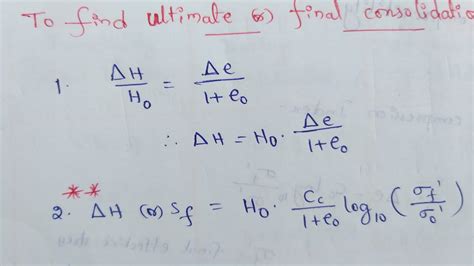 To find ultimate (or) final consolidatio
1. ΔH/H₀ = Δe/(1+e₀)
∴ ΔH = H₀ · Δe/(1+e₀)
**
2. ΔH (or) S_f = H₀ · C_c/(1+e₀) log₁₀ (σ_f'/σ₀')